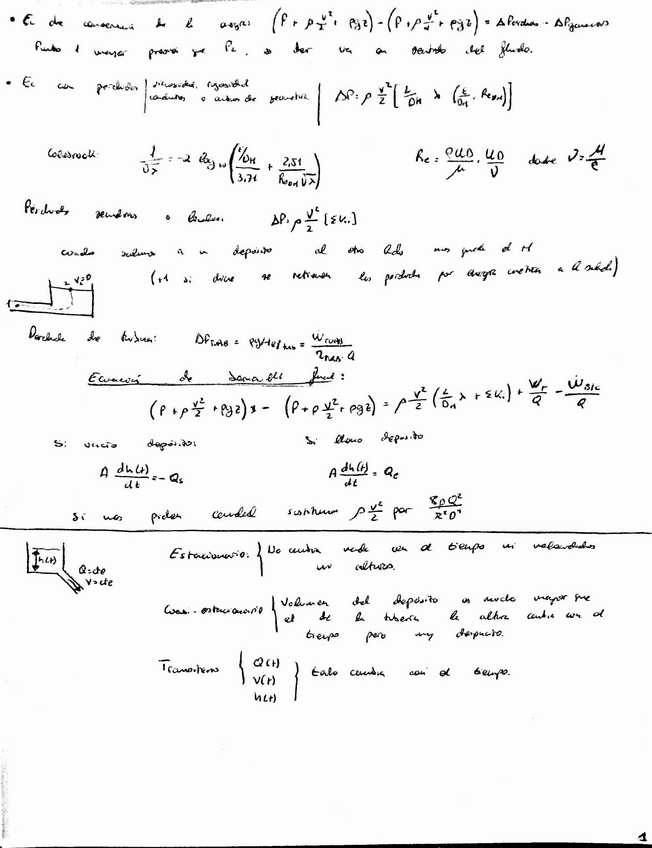 • Ec de conservación de la energía: (P + ρ v²/2 + ρgz) - (P + ρ v²/2 + ρgz) = ΔPerdidas - ΔPganancias
Punto 1 mayor presión que P2, es decir va en sentido del fluido.
• Ec con perdidas | viscosidad, rugosidad | ΔP = ρ v²/2 [L/DH λ (ε/DH, ReDH)]
conductos o cambios de geometría
Colebrook: 1/√λ = -2 log10 (ε/DH/3,71 + 2,51/ReDH √λ) Re = ρUD/μ = UD/ν donde ν = μ/ρ
Perdidas secundarias o locales: ΔP = ρ v²/2 [ΣKi]
cuando salimos a un depósito al otro lado nos queda el +1
(+1 si dice se retienen las perdidas por energía cinética a la salida)
1 2 V2=0
Perdida de turbina: ΔPTURB = ρgHefTURB = ẆTURB/ηTURB·Q
Ecuación de Bernoulli final:
(P + ρ v²/2 + ρgz)1 - (P + ρ v²/2 + ρgz) = ρ v²/2 (L/DH λ + ΣKi) + ẆT/Q - ẆB/C/Q
Si vacío depósito: Si lleno depósito
A dh(t)/dt = -Qs A dh(t)/dt = Qe
Si nos piden caudal sustituimos ρ v²/2 por 8ρQ²/π²D⁴
h(t) Q=cte V=cte
Estacionario: { No cambia nada con el tiempo ni velocidades
ni alturas.
Cuasi-estacionario { Volumen del depósito es mucho mayor que
el de la tubería la altura cambia con el
tiempo pero muy despacito.
Transitorio { Q(t) V(t) h(t) } todo cambia con el tiempo.
1